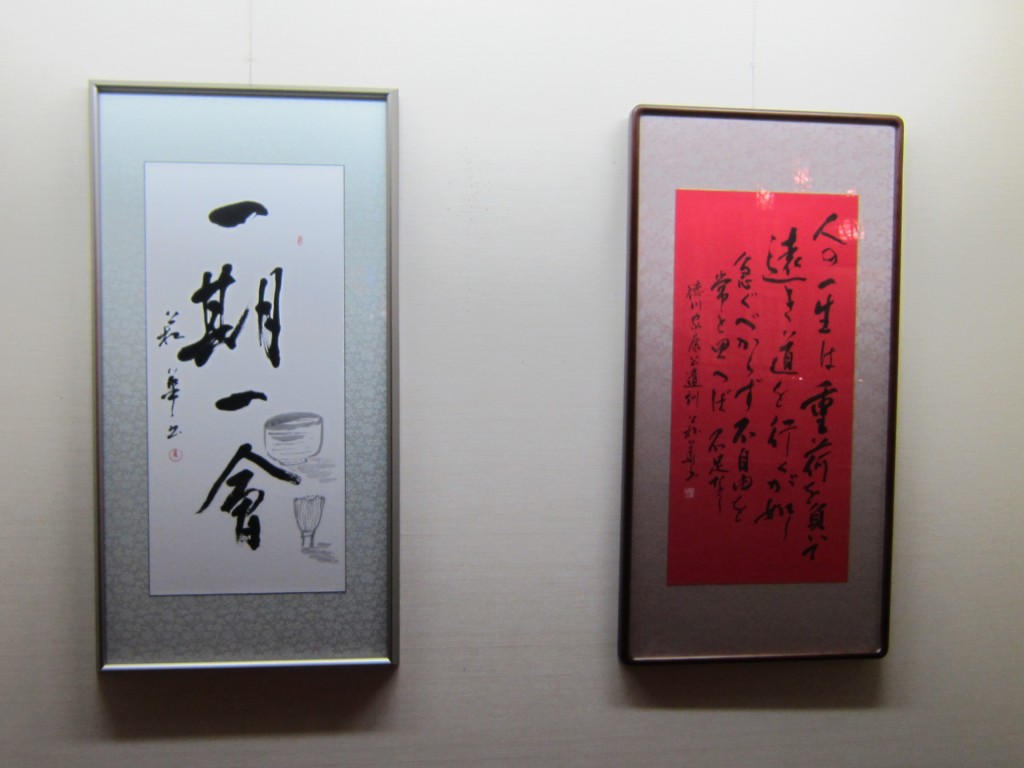 一期一會
人の一生は重荷を負いて
遠き道を行くが如し
急ぐべからず不自由を
常と思へば不足なし
徳川家康公遺訓